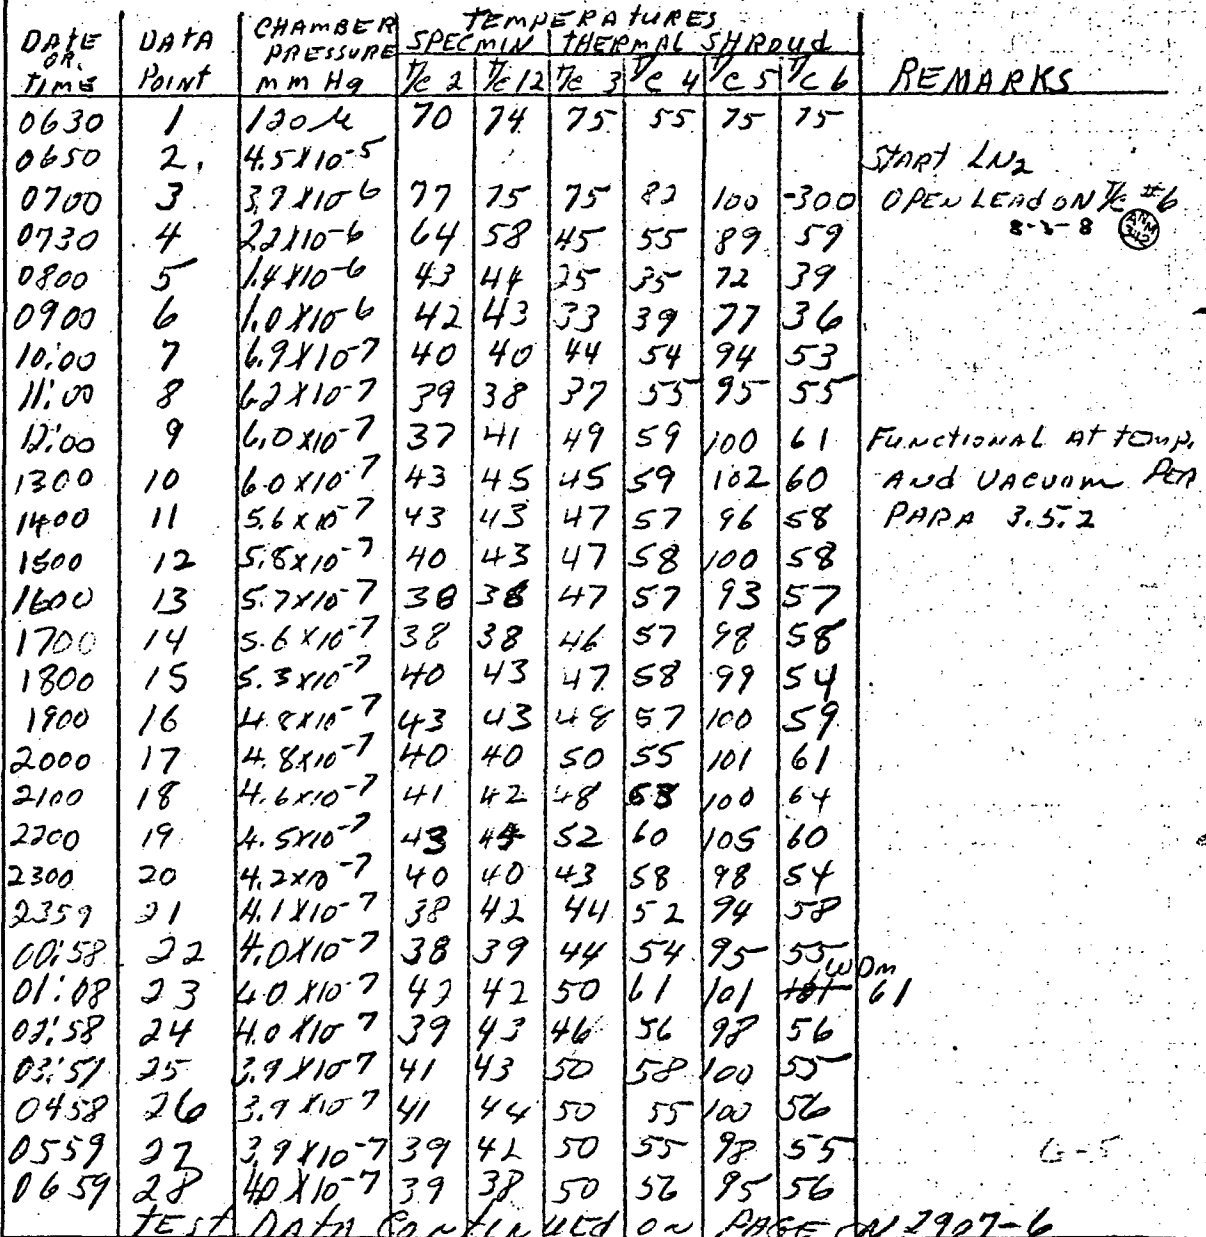 TEMPERATURES
DATE OR. TIME DATA POINT CHAMBER PRESSURE mm Hg SPECMIN THERMAL SHROUD
T/c 2 T/c 12 T/c 3 T/c 4 T/c 5 T/c 6 REMARKS
0630 1 120 μ 70 74 75 55 75 75
0650 2. 4.5X10-5 START LN2
0700 3 3.9X10-6 77 75 75 82 100 -300 OPEN LEAD ON T/c #6
0730 4 2.2X10-6 64 58 45 55 89 59 8-3-8
0800 5 1.4X10-6 43 44 25 35 72 39
0900 6 1.0X10-6 42 43 33 39 77 36
10:00 7 6.9X10-7 40 40 44 54 94 53
11:00 8 6.2X10-7 39 38 37 55 95 55
12:00 9 6.0X10-7 37 41 49 59 100 61 FUNCTIONAL AT TEMP.
1300 10 6.0X10-7 43 45 45 59 102 60 AND VACUUM PER
1400 11 5.6X10-7 43 43 47 57 96 58 PARA 3.5.2
1500 12 5.8X10-7 40 43 47 58 100 58
1600 13 5.7X10-7 38 38 47 57 93 57
1700 14 5.6X10-7 38 38 46 57 98 58
1800 15 5.3X10-7 40 43 47 58 99 54
1900 16 4.8X10-7 43 43 48 57 100 59
2000 17 4.8X10-7 40 40 50 55 101 61
2100 18 4.6X10-7 41 42 48 58 100 64
2200 19 4.5X10-7 43 44 52 60 105 60
2300 20 4.2X10-7 40 40 43 58 98 54
2359 21 4.1X10-7 38 42 44 52 94 58
00:58 22 4.0X10-7 38 39 44 54 95 55
01:08 23 4.0X10-7 42 42 50 61 101 101 WDM 61
02:58 24 4.0X10-7 39 43 46 56 98 56
03:51 25 3.9X10-7 41 43 50 58 100 55
0458 26 3.9X10-7 41 44 50 55 100 56
0559 27 3.9X10-7 39 42 50 55 98 55 G-5
0659 28 4.0X10-7 39 38 50 56 95 56
TEST DATA CONTINUED ON PAGE 2907-6